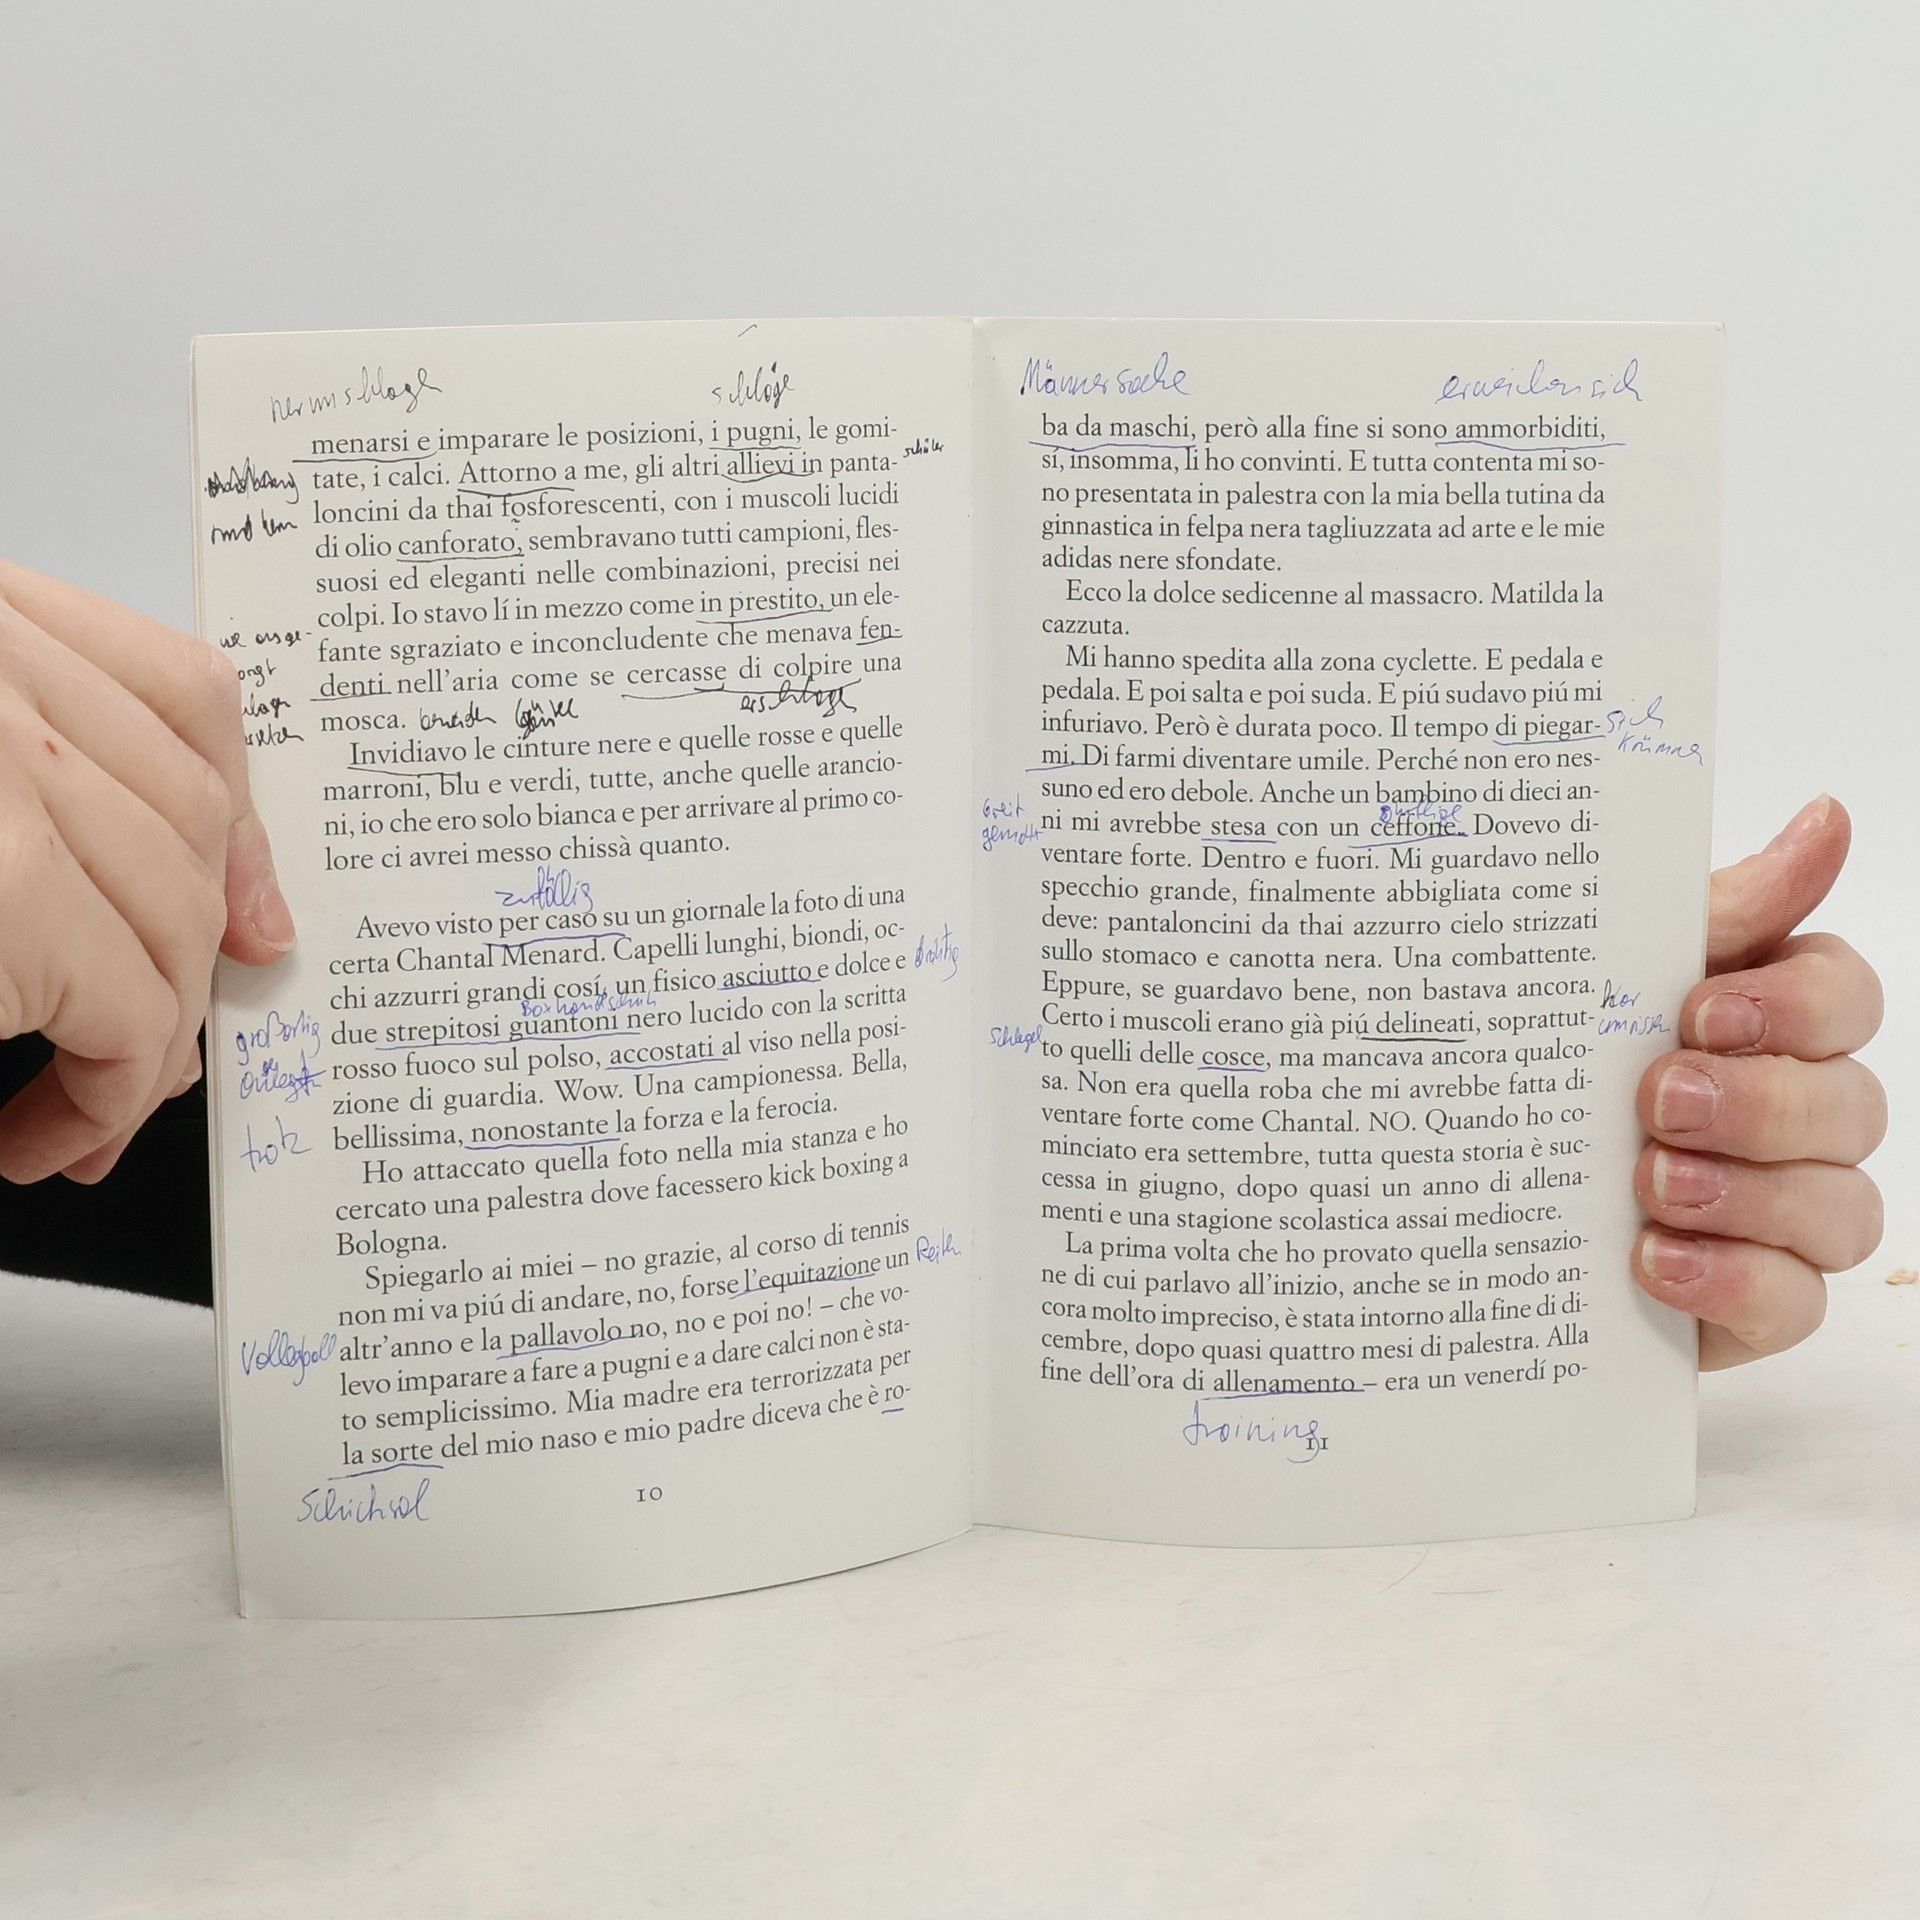 schläge
menarsi e imparare le posizioni, i pugni, le gomi-
tate, i calci. Attorno a me, gli altri allievi in panta-
schüler
loncini da thai fosforescenti, con i muscoli lucidi
di olio canforato, sembravano tutti campioni, fles-
suosi ed eleganti nelle combinazioni, precisi nei
colpi. Io stavo lí in mezzo come in prestito, un ele-
fante sgraziato e inconcludente che menava fen-
denti nell'aria come se cercasse di colpire una
mosca.
Invidiavo le cinture nere e quelle rosse e quelle
marroni, blu e verdi, tutte, anche quelle arancio-
ni, io che ero solo bianca e per arrivare al primo co-
lore ci avrei messo chissà quanto.
zufällig
Avevo visto per caso su un giornale la foto di una
certa Chantal Menard. Capelli lunghi, biondi, oc-
chi azzurri grandi cosí, un fisico asciutto e dolce e
drahtig
Boxhandschuh
großartig
due strepitosi guantoni nero lucido con la scritta
rosso fuoco sul polso, accostati al viso nella posi-
zione di guardia. Wow. Una campionessa. Bella,
trotz
bellissima, nonostante la forza e la ferocia.
Ho attaccato quella foto nella mia stanza e ho
cercato una palestra dove facessero kick boxing a
Bologna.
Spiegarlo ai miei – no grazie, al corso di tennis
non mi va piú di andare, no, forse l'equitazione un
Reiten
Volleyball
altr'anno e la pallavolo no, no e poi no! – che vo-
levo imparare a fare a pugni e a dare calci non è sta-
to semplicissimo. Mia madre era terrorizzata per
la sorte del mio naso e mio padre diceva che è ro-
Schicksal
10
Männersache
erweichen sich
ba da maschi, però alla fine si sono ammorbiditi,
sí, insomma, li ho convinti. E tutta contenta mi so-
no presentata in palestra con la mia bella tutina da
ginnastica in felpa nera tagliuzzata ad arte e le mie
adidas nere sfondate.
Ecco la dolce sedicenne al massacro. Matilda la
cazzuta.
Mi hanno spedita alla zona cyclette. E pedala e
pedala. E poi salta e poi suda. E piú sudavo piú mi
infuriavo. Però è durata poco. Il tempo di piegar-
sich
krümmen
mi. Di farmi diventare umile. Perché non ero nes-
suno ed ero debole. Anche un bambino di dieci an-
ni mi avrebbe stesa con un ceffone. Dovevo di-
ventare forte. Dentro e fuori. Mi guardavo nello
specchio grande, finalmente abbigliata come si
deve: pantaloncini da thai azzurro cielo strizzati
sullo stomaco e canotta nera. Una combattente.
Eppure, se guardavo bene, non bastava ancora.
Certo i muscoli erano già piú delineati, soprattut-
to quelli delle cosce, ma mancava ancora qualco-
sa. Non era quella roba che mi avrebbe fatta di-
ventare forte come Chantal. NO. Quando ho co-
minciato era settembre, tutta questa storia è suc-
cessa in giugno, dopo quasi un anno di allena-
menti e una stagione scolastica assai mediocre.
La prima volta che ho provato quella sensazio-
ne di cui parlavo all'inizio, anche se in modo an-
cora molto impreciso, è stata intorno alla fine di di-
cembre, dopo quasi quattro mesi di palestra. Alla
fine dell'ora di allenamento – era un venerdí po-
training
11